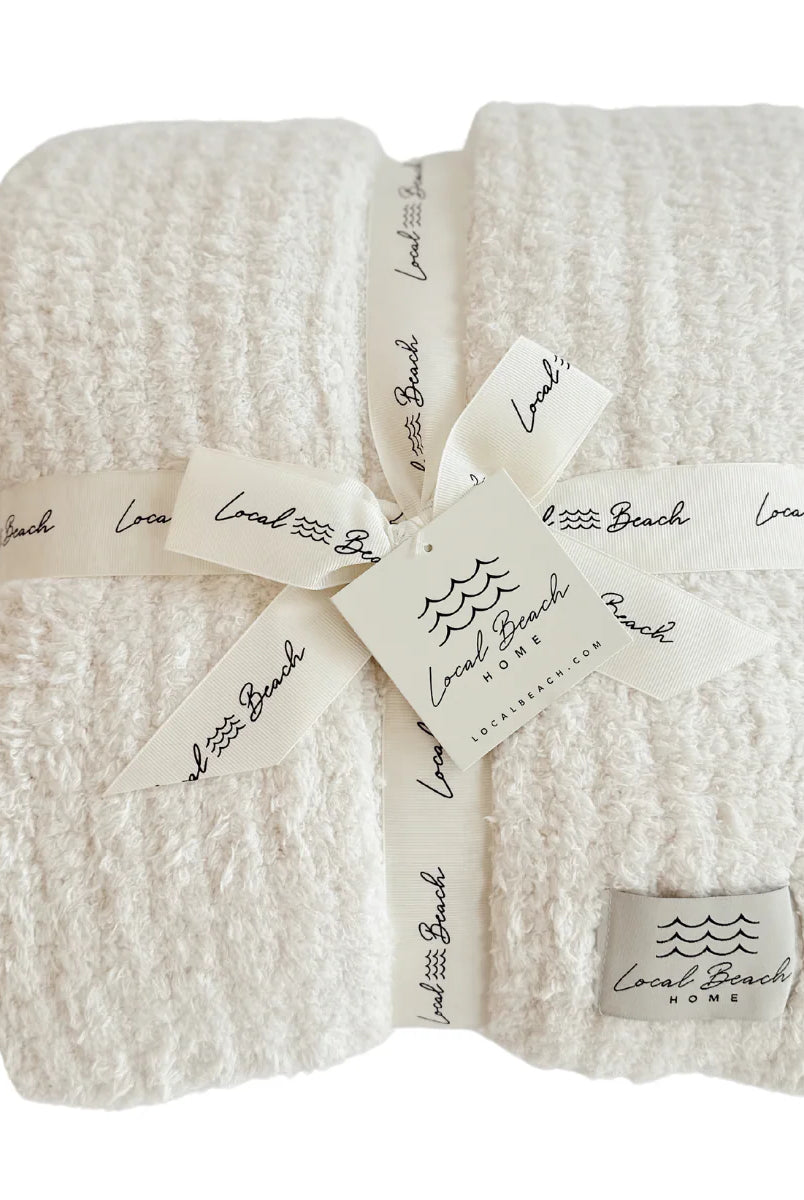 Local Beach
Beach
Local
Beach
Loca
Local
Beach
Beach
Local Beach
HOME
LOCALBEACH.COM
Beach
Beach
Local
Local Beach
Local Beach
HOME